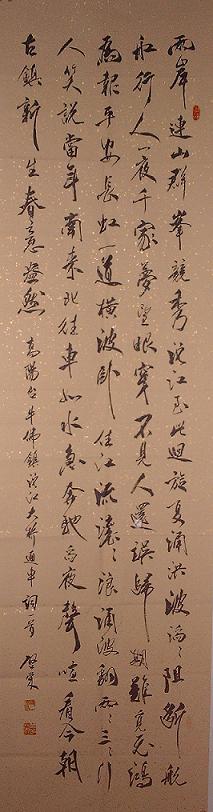 两岸连山群峰竞秀沱江至此迴旋夏涌洪波滔滔阻断航
船行人一夜千家梦望眼穿不见人还误归期难觅飞鸿
为报平安长虹一道横波卧任江流滚滚浪涌波翻两两三三行
人笑说当年南来北往车如水急 夜声喧看今朝
古镇新生春意盎然 高阳台牛佛镇沱江大桥通车词